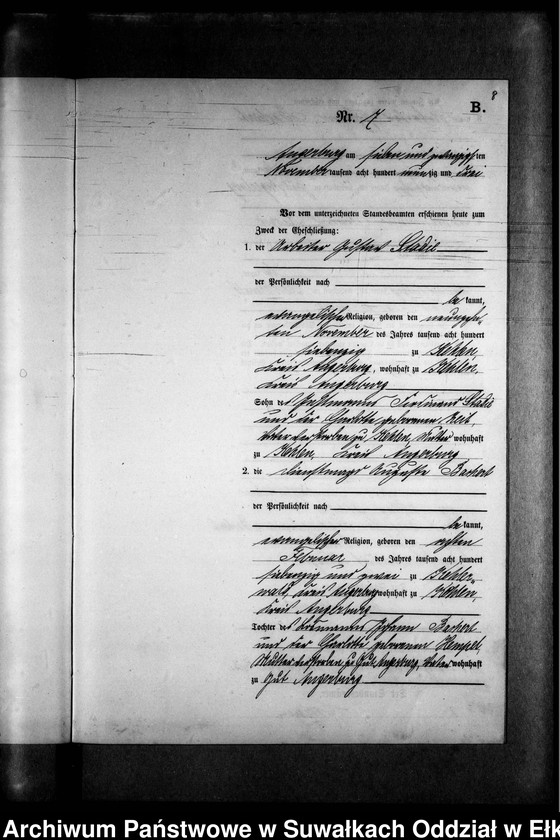 8
B.
Nr. 7
Angerburg am sieben und zwanzigsten
November tausend acht hundert neunzig und drei
Vor dem unterzeichneten Standesbeamten erschienen heute zum
Zweck der Eheschließung:
1. der Arbeiter Gustav Stadie
der Persönlichkeit nach
be kannt,
evangelischer Religion, geboren den neunzehn-
ten November des Jahres tausend acht hundert
siebenzig zu Kehlen,
Kreis Angerburg, wohnhaft zu Kehlen,
Kreis Angerburg
Sohn des Ferdinand Stadie
und der Charlotte geborenen
Vater verstorben zu Kehlen, Mutter wohnhaft
zu Kehlen, Kreis Angerburg
2. die Dienstmagd Auguste
der Persönlichkeit nach
be kannt,
evangelischer Religion, geboren den
Februar des Jahres tausend acht hundert
siebenzig und zwei zu Kehler-
wald, Kreis Angerburg wohnhaft zu Kehlen,
Kreis Angerburg
Tochter des Johann
und der Charlotte geborenen Hempel,
Mutter verstorben zu Gut Angerburg, Vater wohnhaft
zu Gut Angerburg
Archiwum Państwowe w Suwałkach Oddział w Ełk